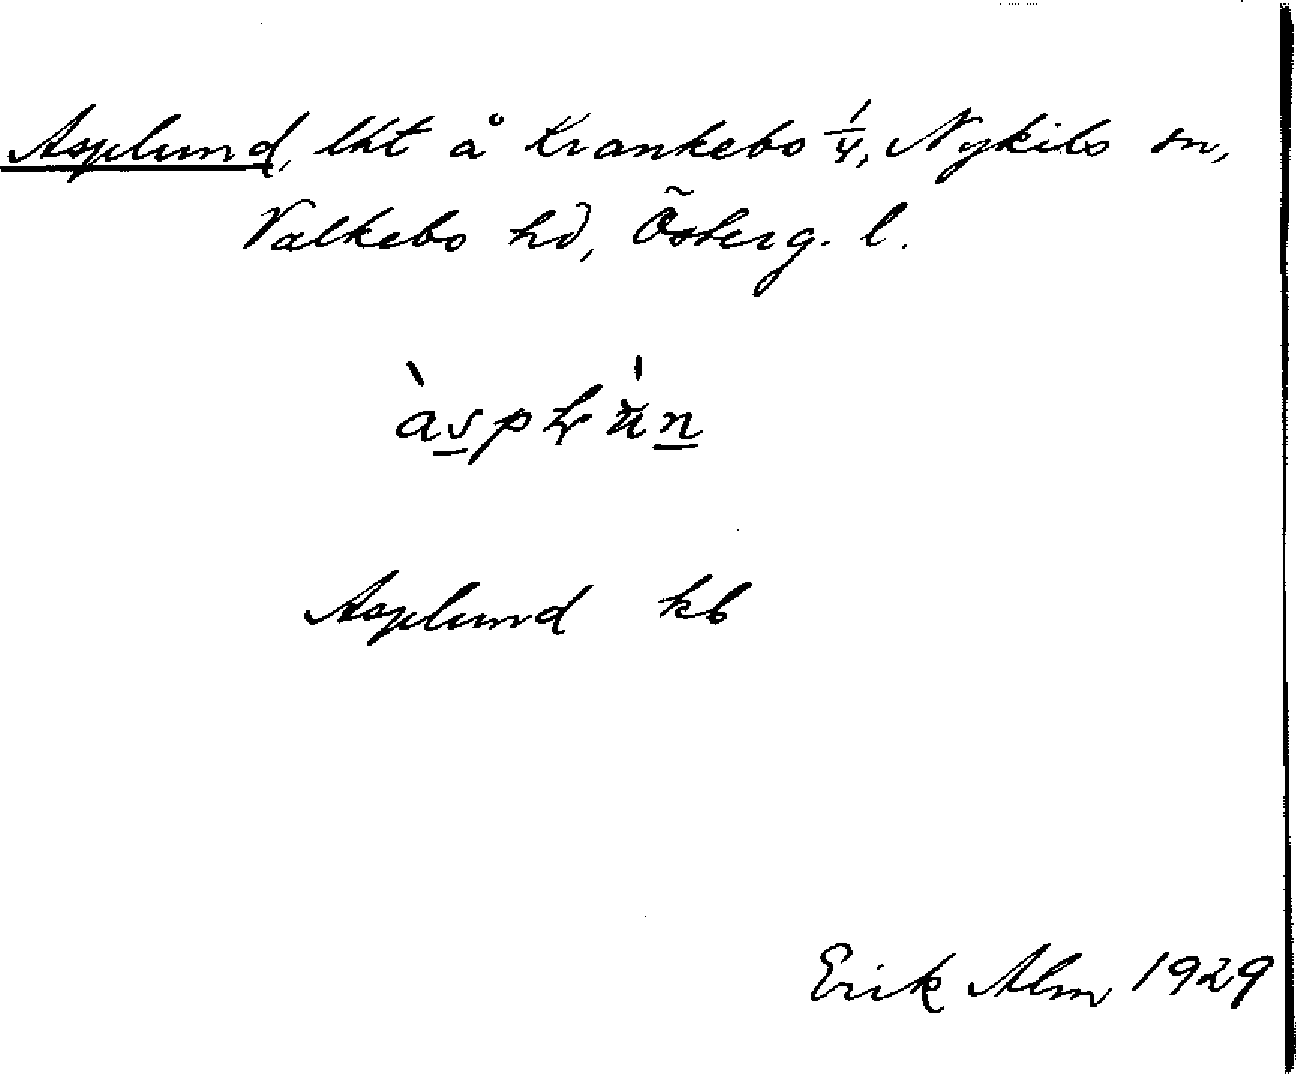 Asplund, lht å Krankebo 1/4, Nykils sn,
Valkebo hd, Österg. l.
Asplund kb
Erik Alm 1929